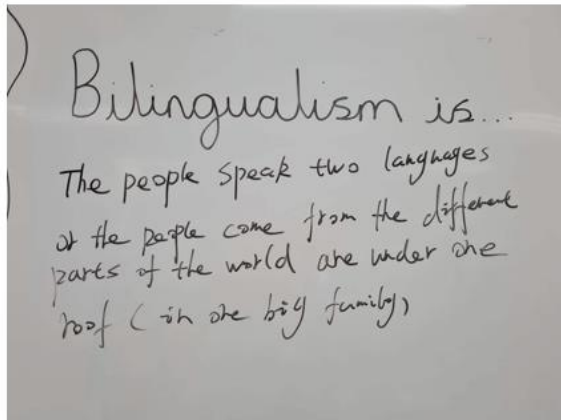 Bilingualism is...
The people speak two languages
or the people come from the different
parts of the world are under one
roof (in one big family)